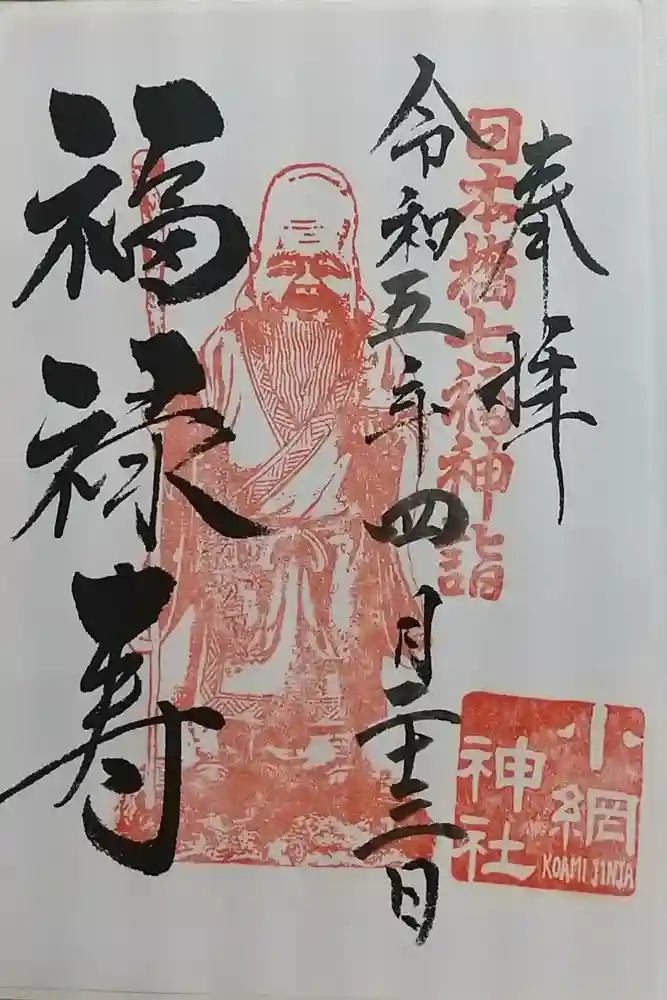 奉拝
日本橋七福神詣
令和五年四月二十二日
福禄寿
小網
神社
KOAMI JINJA